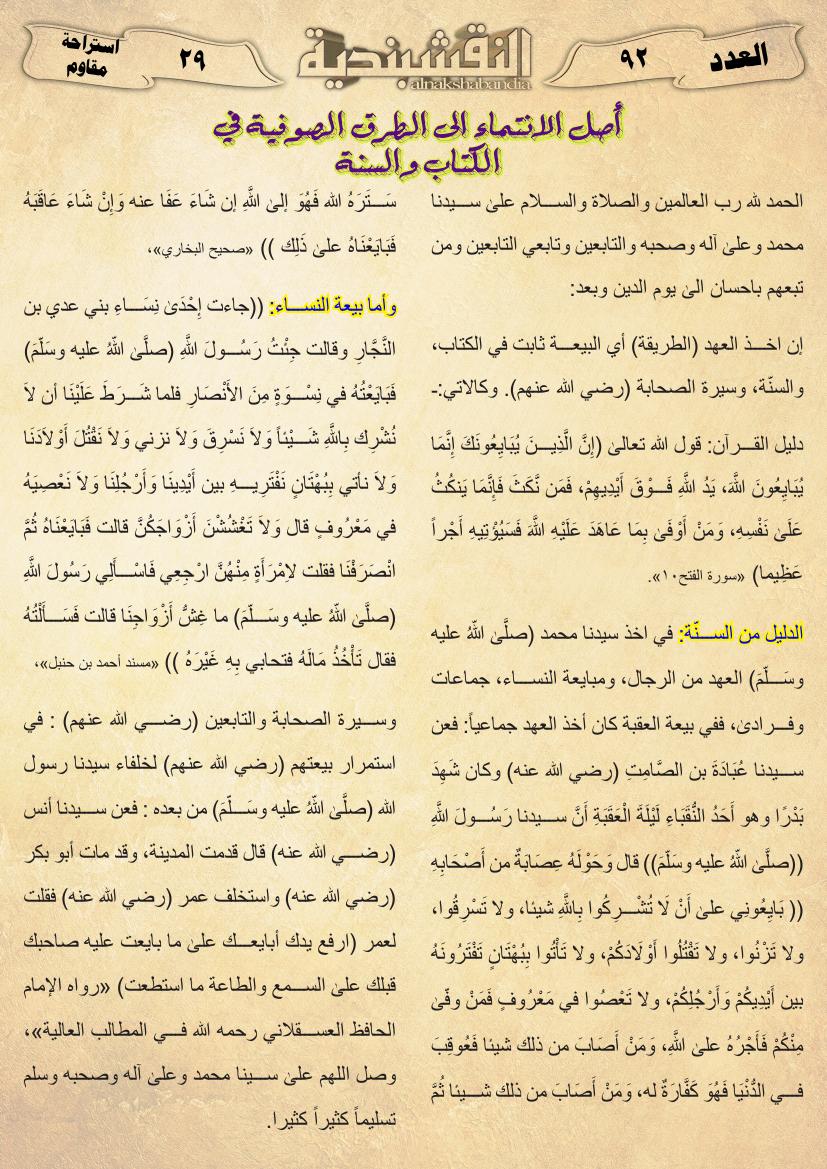 العدد
٩٢
النقشبندية
alnakshabandia
٢٩
استراحة
مقاوم
أصل الانتماء الى الطرق الصوفية في
الكتاب والسنة
الحمد لله رب العالمين والصلاة والســـلام علىٰ ســـيدنا
محمد وعلىٰ آله وصحبه والتابعين وتابعي التابعين ومن
تبعهم باحسان الىٰ يوم الدين وبعد:
إن اخـــذ العهد (الطريقة) أي البيعـــة ثابت في الكتاب،
والسنّة، وسيرة الصحابة (رضي الله عنهم). وكالاتي:-
دليل القـــرآن: قول الله تعالىٰ (إِنَّ الَّذِيـــنَ يُبَايِعُونَكَ إِنَّمَا
يُبَايِعُونَ اللَّهَ، يَدُ اللَّهِ فَـــوْقَ أَيْدِيهِمْ، فَمَن نَّكَثَ فَإِنَّمَا يَنكُثُ
عَلَىٰ نَفْسِهِ، وَمَنْ أَوْفَىٰ بِمَا عَاهَدَ عَلَيْهِ اللَّهَ فَسَيُؤْتِيهِ أَجْراً
عَظِيما) «سورة الفتح١٠».
الدليل من الســـنّة: في اخذ سيدنا محمد (صلَّىٰ اللهُ عليه
وسَـــلّمَ) العهد من الرجال، ومبايعة النســـاء، جماعات
وفـــرادىٰ، ففي بيعة العقبة كان أخذ العهد جماعياً: فعن
ســـيدنا عُبَادَةَ بن الصَّامتِ (رضي الله عنه) وكان شَهِدَ
بَدْرًا وهو أَحَدُ النُّقَبَاءِ لَيْلَةَ الْعَقَبَةِ أَنَّ ســـيدنا رَسُـــولَ اللَّهِ
((صلَّىٰ اللهُ عليه وسَلّمَ)) قال وَحَوْلَهُ عِصَابَةٌ من أَصْحَابِهِ
(( بَايِعُونِي علىٰ أَنْ لَا تُشْـــرِكُوا بِاللَّهِ شيئا، ولا تَسْرِقُوا،
ولا تَزْنُوا، ولا تَقْتُلُوا أَوْلَادَكُمْ، ولا تَأْتُوا بِبُهْتَانٍ تَفْتَرُونَهُ
بين أَيْدِيكُمْ وَأَرْجُلِكُمْ، ولا تَعْصُوا في مَعْرُوفٍ فَمَنْ وفّىٰ
مِنْكُمْ فَأَجْرُهُ علىٰ اللَّهِ، وَمَنْ أَصَابَ من ذلك شيئا فَعُوقِبَ
فـــي الدُّنْيَا فَهُوَ كَفَّارَةٌ له، وَمَنْ أَصَابَ من ذلك شـــيئا ثُمَّ
سَـــتَرَهُ الله فَهُوَ إلىٰ اللَّهِ إن شَاءَ عَفَا عنه وَإِنْ شَاءَ عَاقَبَهُ
فَبَايَعْنَاهُ علىٰ ذَلِك )) «صحيح البخاري»،
وأما بيعة النســـاء: ((جاءت إِحْدَىٰ نِسَـــاءِ بني عدي بن
النَّجَّارِ وقالت جِئْتُ رَسُـــولَ اللَّهِ (صلَّىٰ اللهُ عليه وسَلّمَ)
فَبَايَعْتُهُ في نِسْـــوَةٍ مِنَ الأَنْصَارِ فلما شَـــرَطَ عَلَيْنَا أن لاَ
نُشْرِكَ بِاللَّهِ شَـــيْئاً وَلاَ نَسْرِقَ وَلاَ نزني وَلاَ نَقْتُلَ أَوْلاَدَنَا
وَلاَ نأتي بِبُهْتَانٍ نَفْتَرِيـــهِ بين أَيْدِينَا وَأَرْجُلِنَا وَلاَ نَعْصِيَهُ
في مَعْرُوفٍ قال وَلاَ تَغْشُشْنَ أَزْوَاجَكُنَّ قالت فَبَايَعْنَاهُ ثُمَّ
انْصَرَفْنَا فقلت لاِمْرَأَةٍ مِنْهُنَّ ارْجِعِي فَاسْـــأَلِي رَسُولَ اللَّهِ
(صلَّىٰ اللهُ عليه وسَـــلّمَ) ما غِشُّ أَزْوَاجِنَا قالت فَسَـــأَلَتْهُ
فقال تَأْخُذُ مَالَهُ فتحابي بِهِ غَيْرَهُ )) «مسند أحمد بن حنبل»،
وســـيرة الصحابة والتابعين (رضـــي الله عنهم) : في
استمرار بيعتهم (رضي الله عنهم) لخلفاء سيدنا رسول
الله (صلَّىٰ اللهُ عليه وسَـــلّمَ) من بعده : فعن ســـيدنا أنس
(رضـــي الله عنه) قال قدمت المدينة، وقد مات أبو بكر
(رضي الله عنه) واستخلف عمر (رضي الله عنه) فقلت
لعمر (ارفع يدك أبايعـــك علىٰ ما بايعت عليه صاحبك
قبلك علىٰ الســـمع والطاعة ما استطعت) «رواه الإمام
الحافظ العســـقلاني رحمه الله فـــي المطالب العالية»،
وصل اللهم علىٰ ســـينا محمد وعلىٰ آله وصحبه وسلم
تسليماً كثيراً كثيرا.